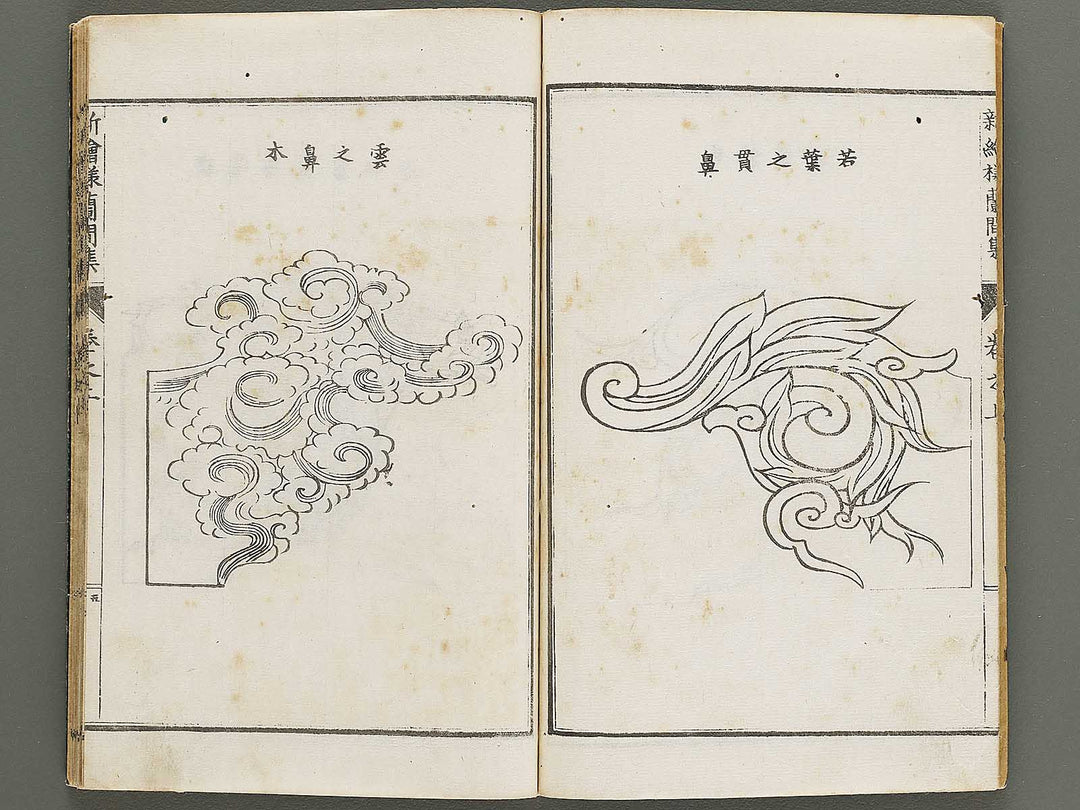 新繪様蘭間集
卷之上
若葉之貫鼻
雲之鼻木
新繪様蘭間集
卷之上
五